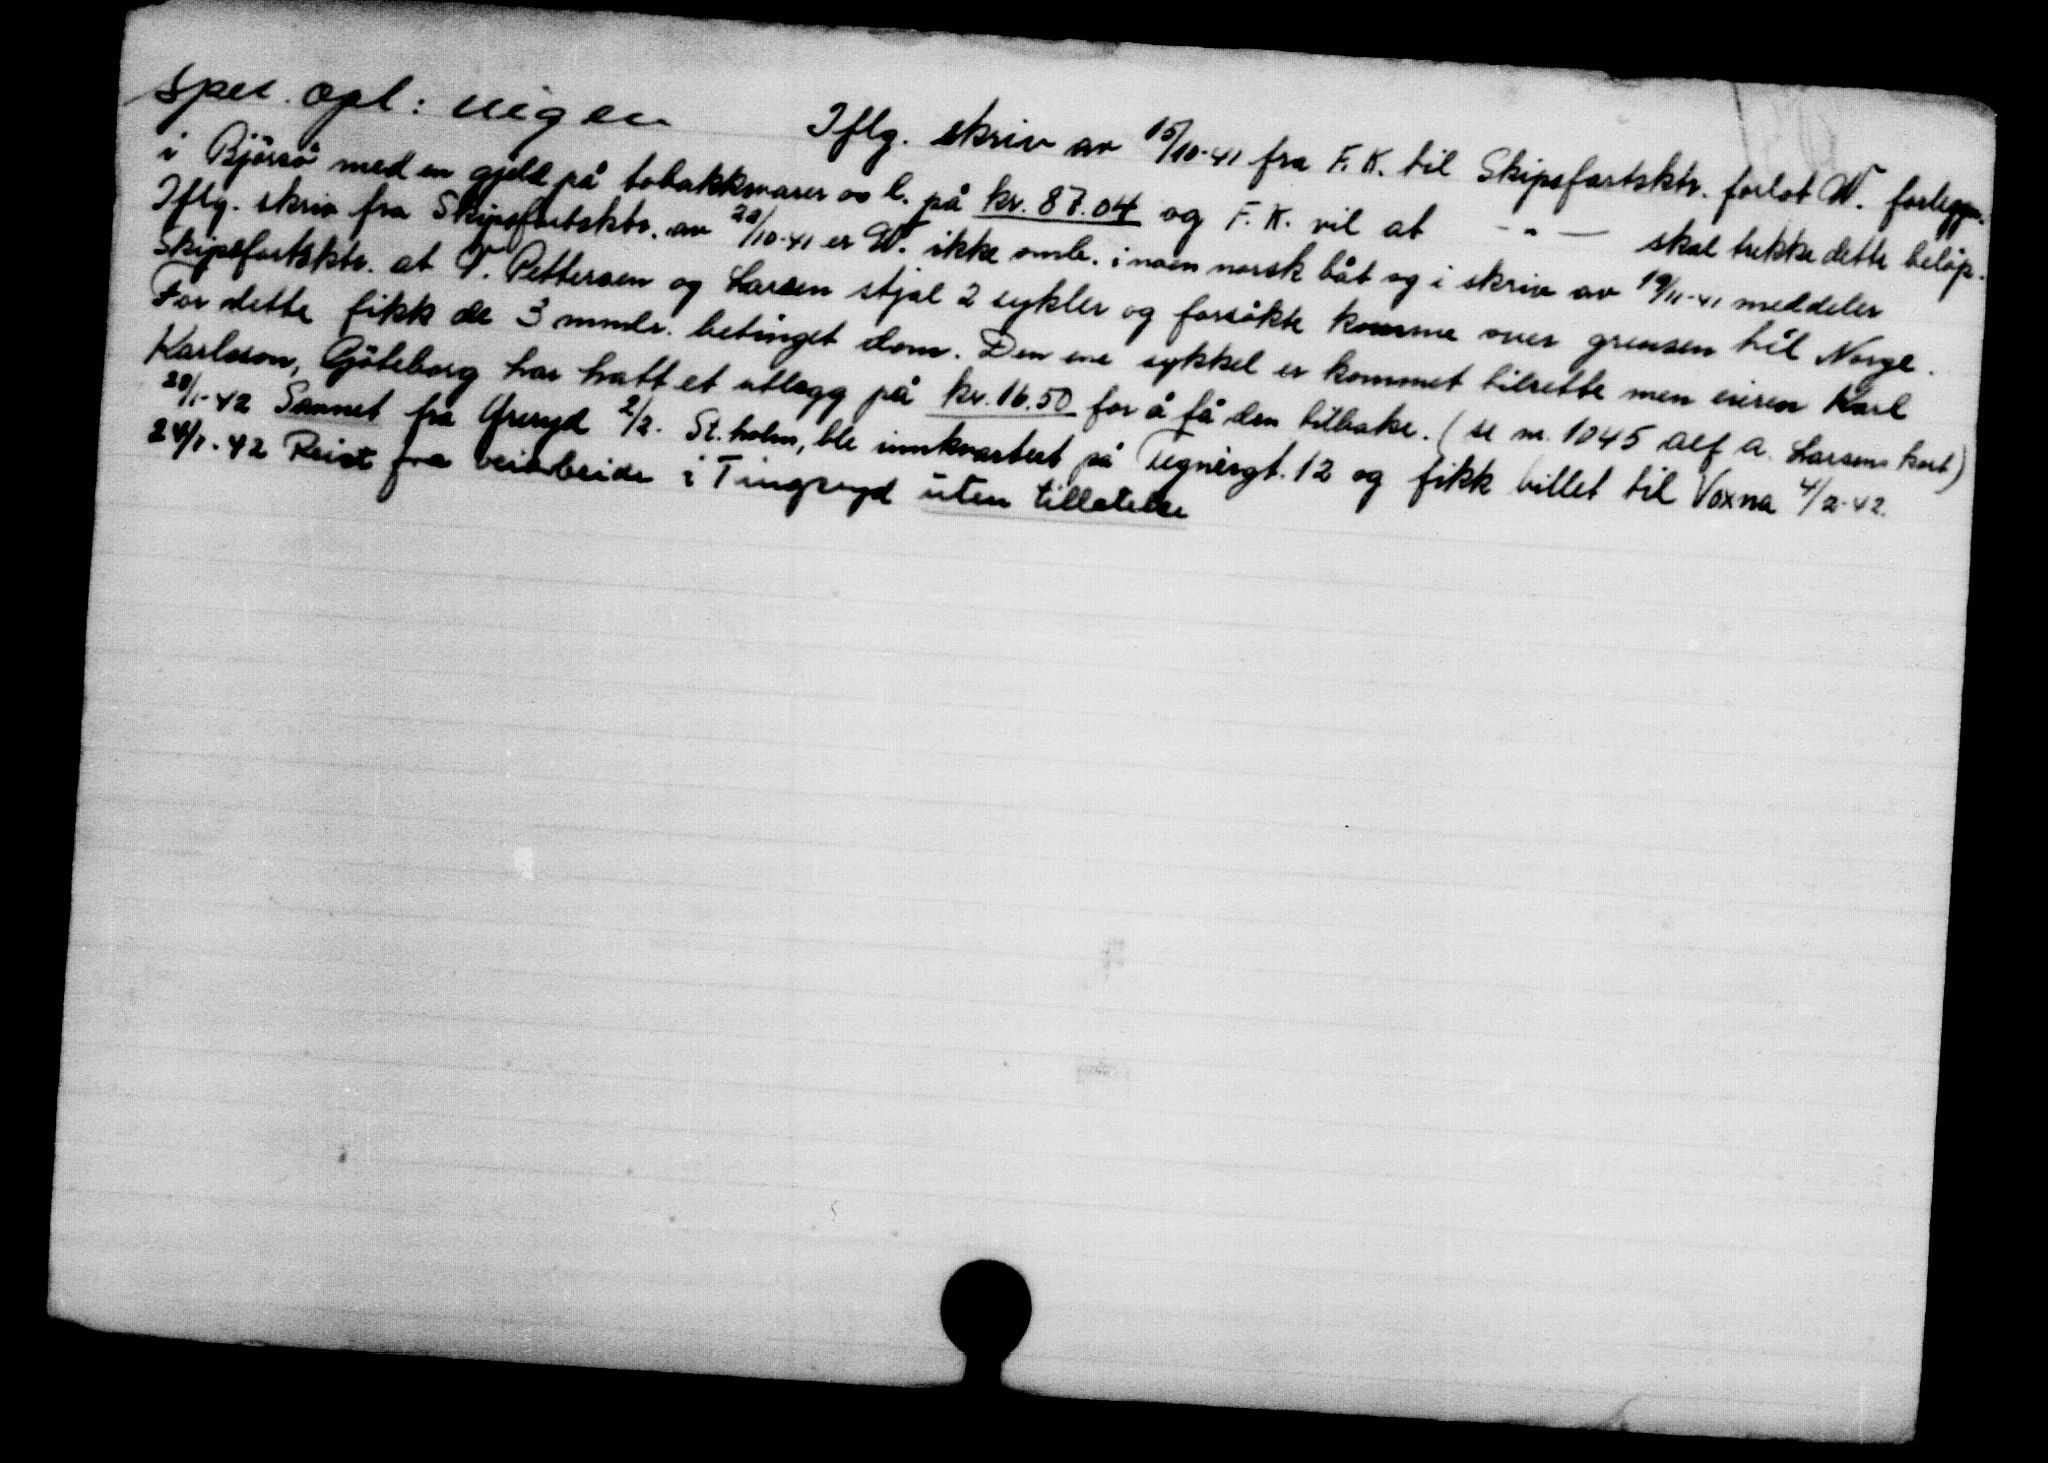 Spes. opl: ingen Iflg. skriv av 15/10-41 fra F. K. til Skipsfartsktr. forlot W. forleggn.
i Björsö med en gjeld på tobakksvarer o l. på kr. 87.04 og F. K. vil at - " - skal trekke dette beløp.
Iflg. skriv fra Skipsfartsktr. av 20/10-41 er W. ikke omb. i noen norsk båt og i skriv av 19/11-41 meddeler
Skipsfartsktr. at V. Pettersen og Larsen stjal 2 sykler og forsøkte komme over grensen til Norge.
For dette fikk de 3 mndr. betinget dom. Den ene sykkel er kommet tilrette men eieren Karl
Karlsson, Göteborg har hatt et utlegg på kr. 16.50 for å få den tilbake. (se nr. 1045 Alf A. Larsens kort)
28/1-42 Savnet fra Gresyd 2/2. St.holm, ble innkvartert på Tegnèrgt. 12 og fikk billet til Voxna 4/2-42.
24/1-42 Reist fra veiarbeide i Tingsryd uten tillatelse